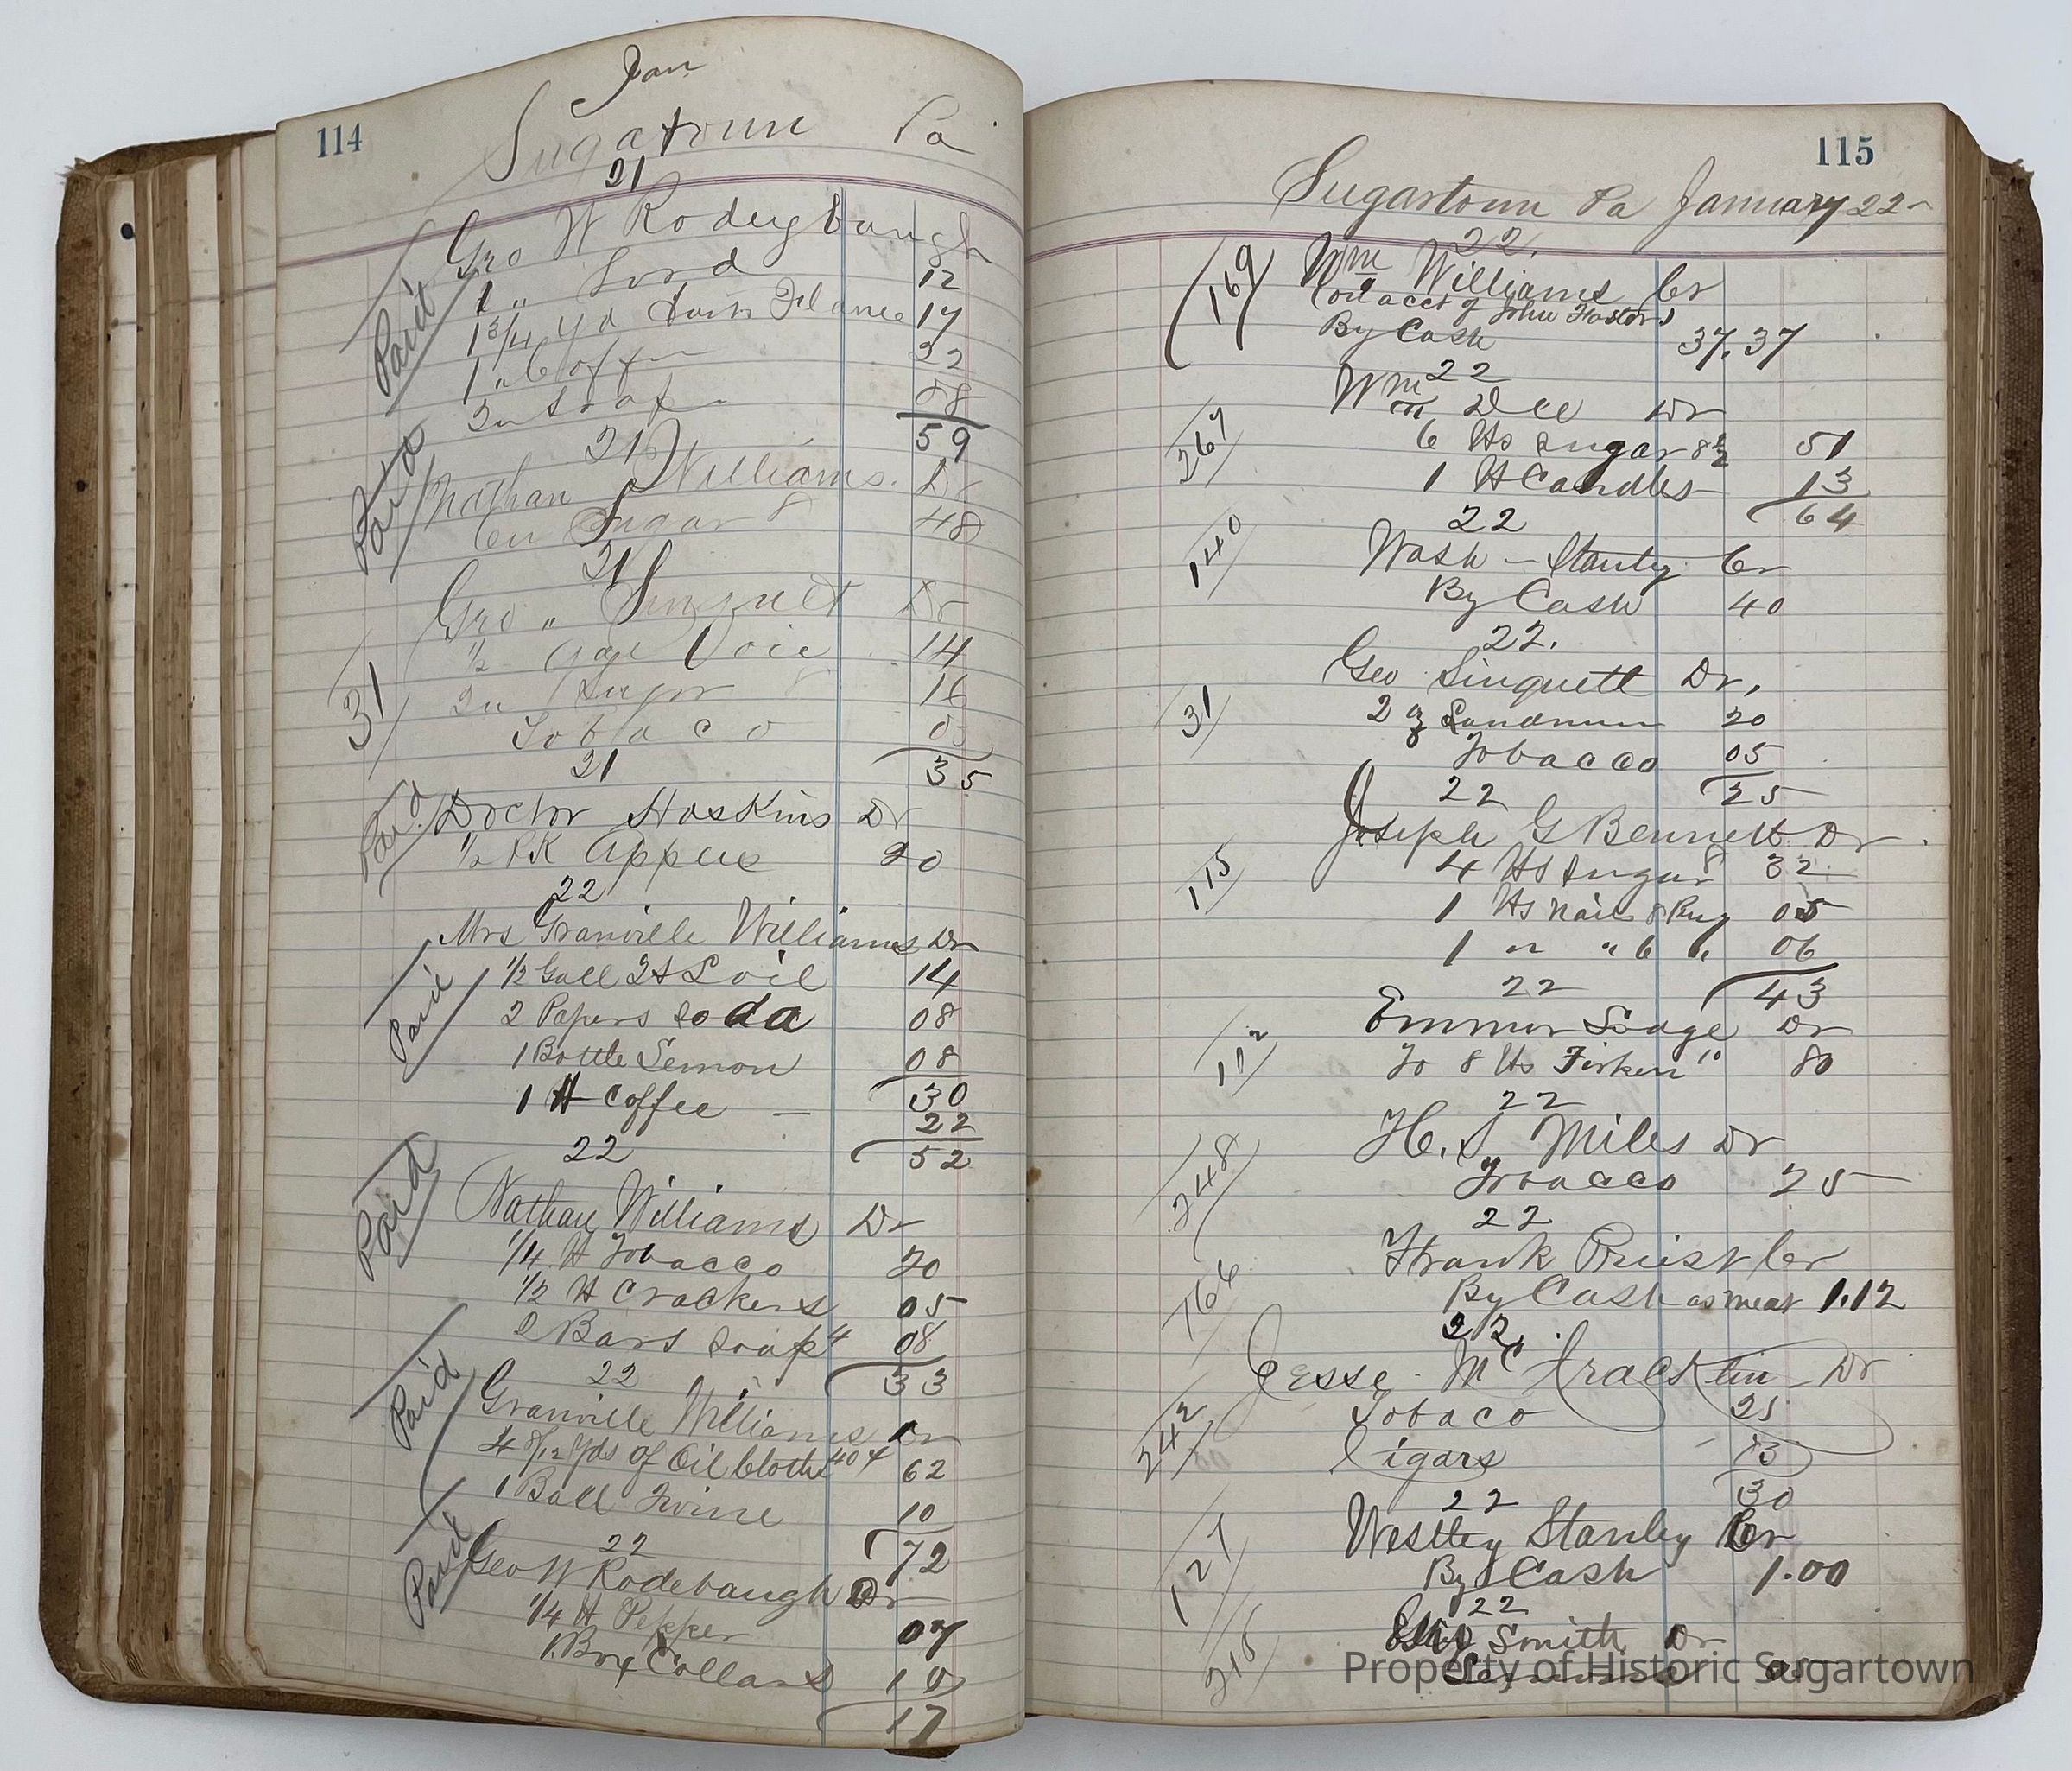 114
Jan
Sugatown Pa
21
Geo W Rodeygbaugh
1 " Lard 12
1 3/4 yd 17
1 " Coffee 22
2 " Soap 08
59
Paid
21
Nathan Williams. Dr
6 " Sugar 8 48
Paid
21
Geo " Singuet Dr
1/2 14
2 " Sugr 8 16
Tobaco 05
35
31
21
Doctor Hoskins Dr
1/2 PK Apples 20
Paid
22
Mrs Granville Williams Dr
1/2 Gall oil 14
2 Papers soda 08
1 Bottle Lemon 08
30
1 H Coffee — 22
52
Paid
22
Nathan Williams Dr
1/4 H Tobacco 20
1/2 H Crackers 05
2 Bars soap 4 08
33
Paid
22
Granville Williams Dr
4 8/12 yds of Oil Cloth 62
1 Ball Twine 10
72
Paid
22
Geo W Rodebaugh Dr
1/4 H Pepper 07
1 Box Collars 10
17
Paid
115
Sugartown Pa January 22
22.
Wm Williams Cr
(on acct of John Foster)
By Cash 37.37
169
22
Wm Dee Dr
6 Hs sugar 8 1/2 51
1 H Candles 13
64
267
22
Wash - Stanley Cr
By Cash 40
140
22.
Geo Singuett Dr,
2 20
Tobacco 05
25
31
22
Joseph G Bennett Dr
4 Hs Sugar 8 32
1 Hs Nails 8 Pny 05
1 " " 6 " 06
43
115
22
Emmor Dr
To 8 Hs Firken 10 80
112
22
H. S Miles Dr
Tobacco 25
248
22
Frank Priest Cr
By Cash as meat 1.12
166
22.
Jesse Mc Dr
Tobaco 25
Cigars
30
242
22
Westley Stanley Cr
By Cash 1.00
127
22
Smith Dr
Property of Historic Sugartown